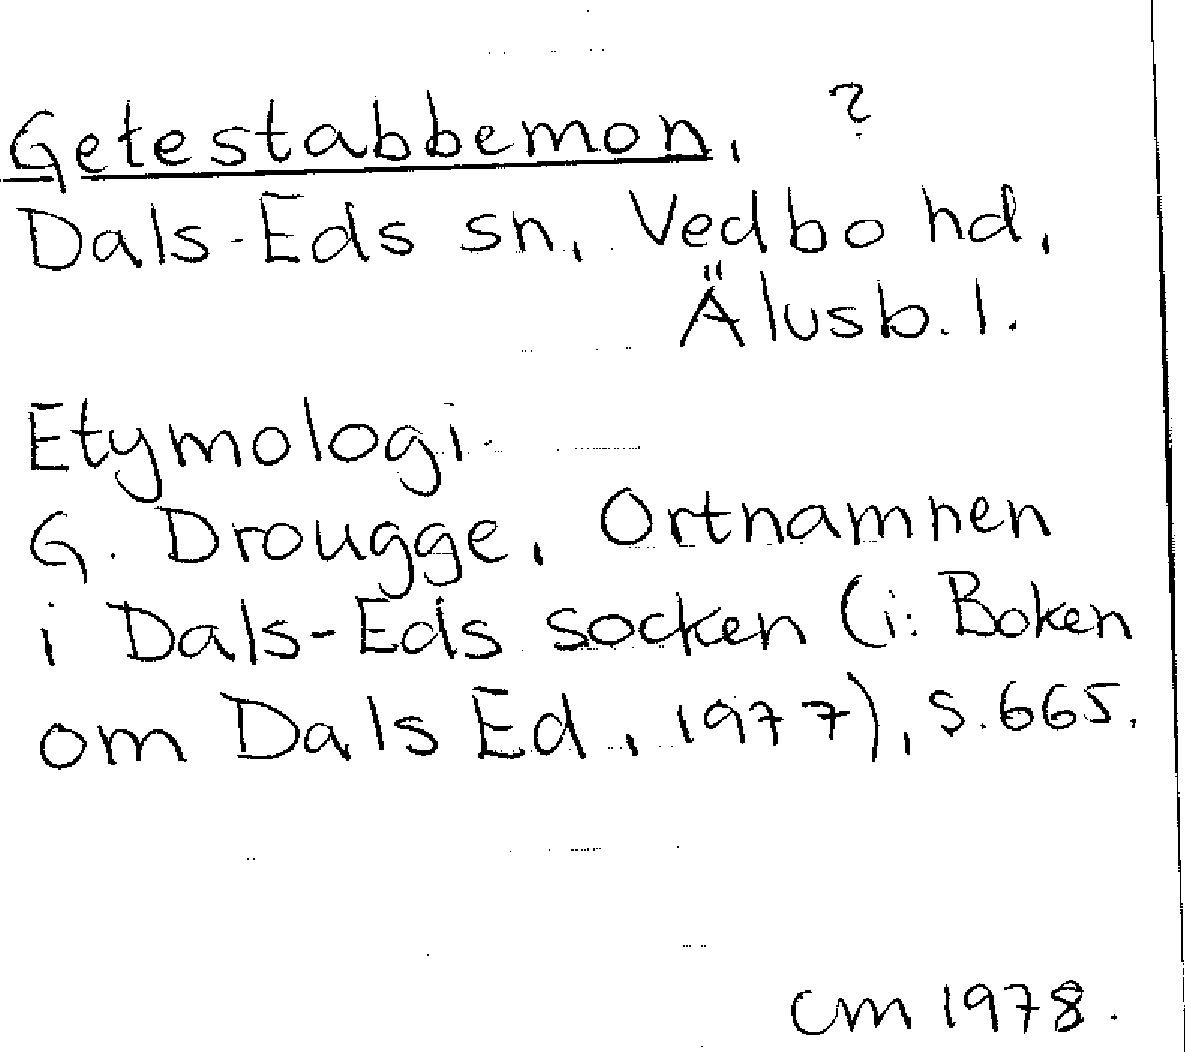 Getestabbemon, ?
Dals-Eds sn, Vedbo hd,
Älvsb. l.
Etymologi
G. Drougge, Ortnamnen
i Dals-Eds socken (i: Boken
om Dals Ed, 1977), s. 665.
CM 1978.